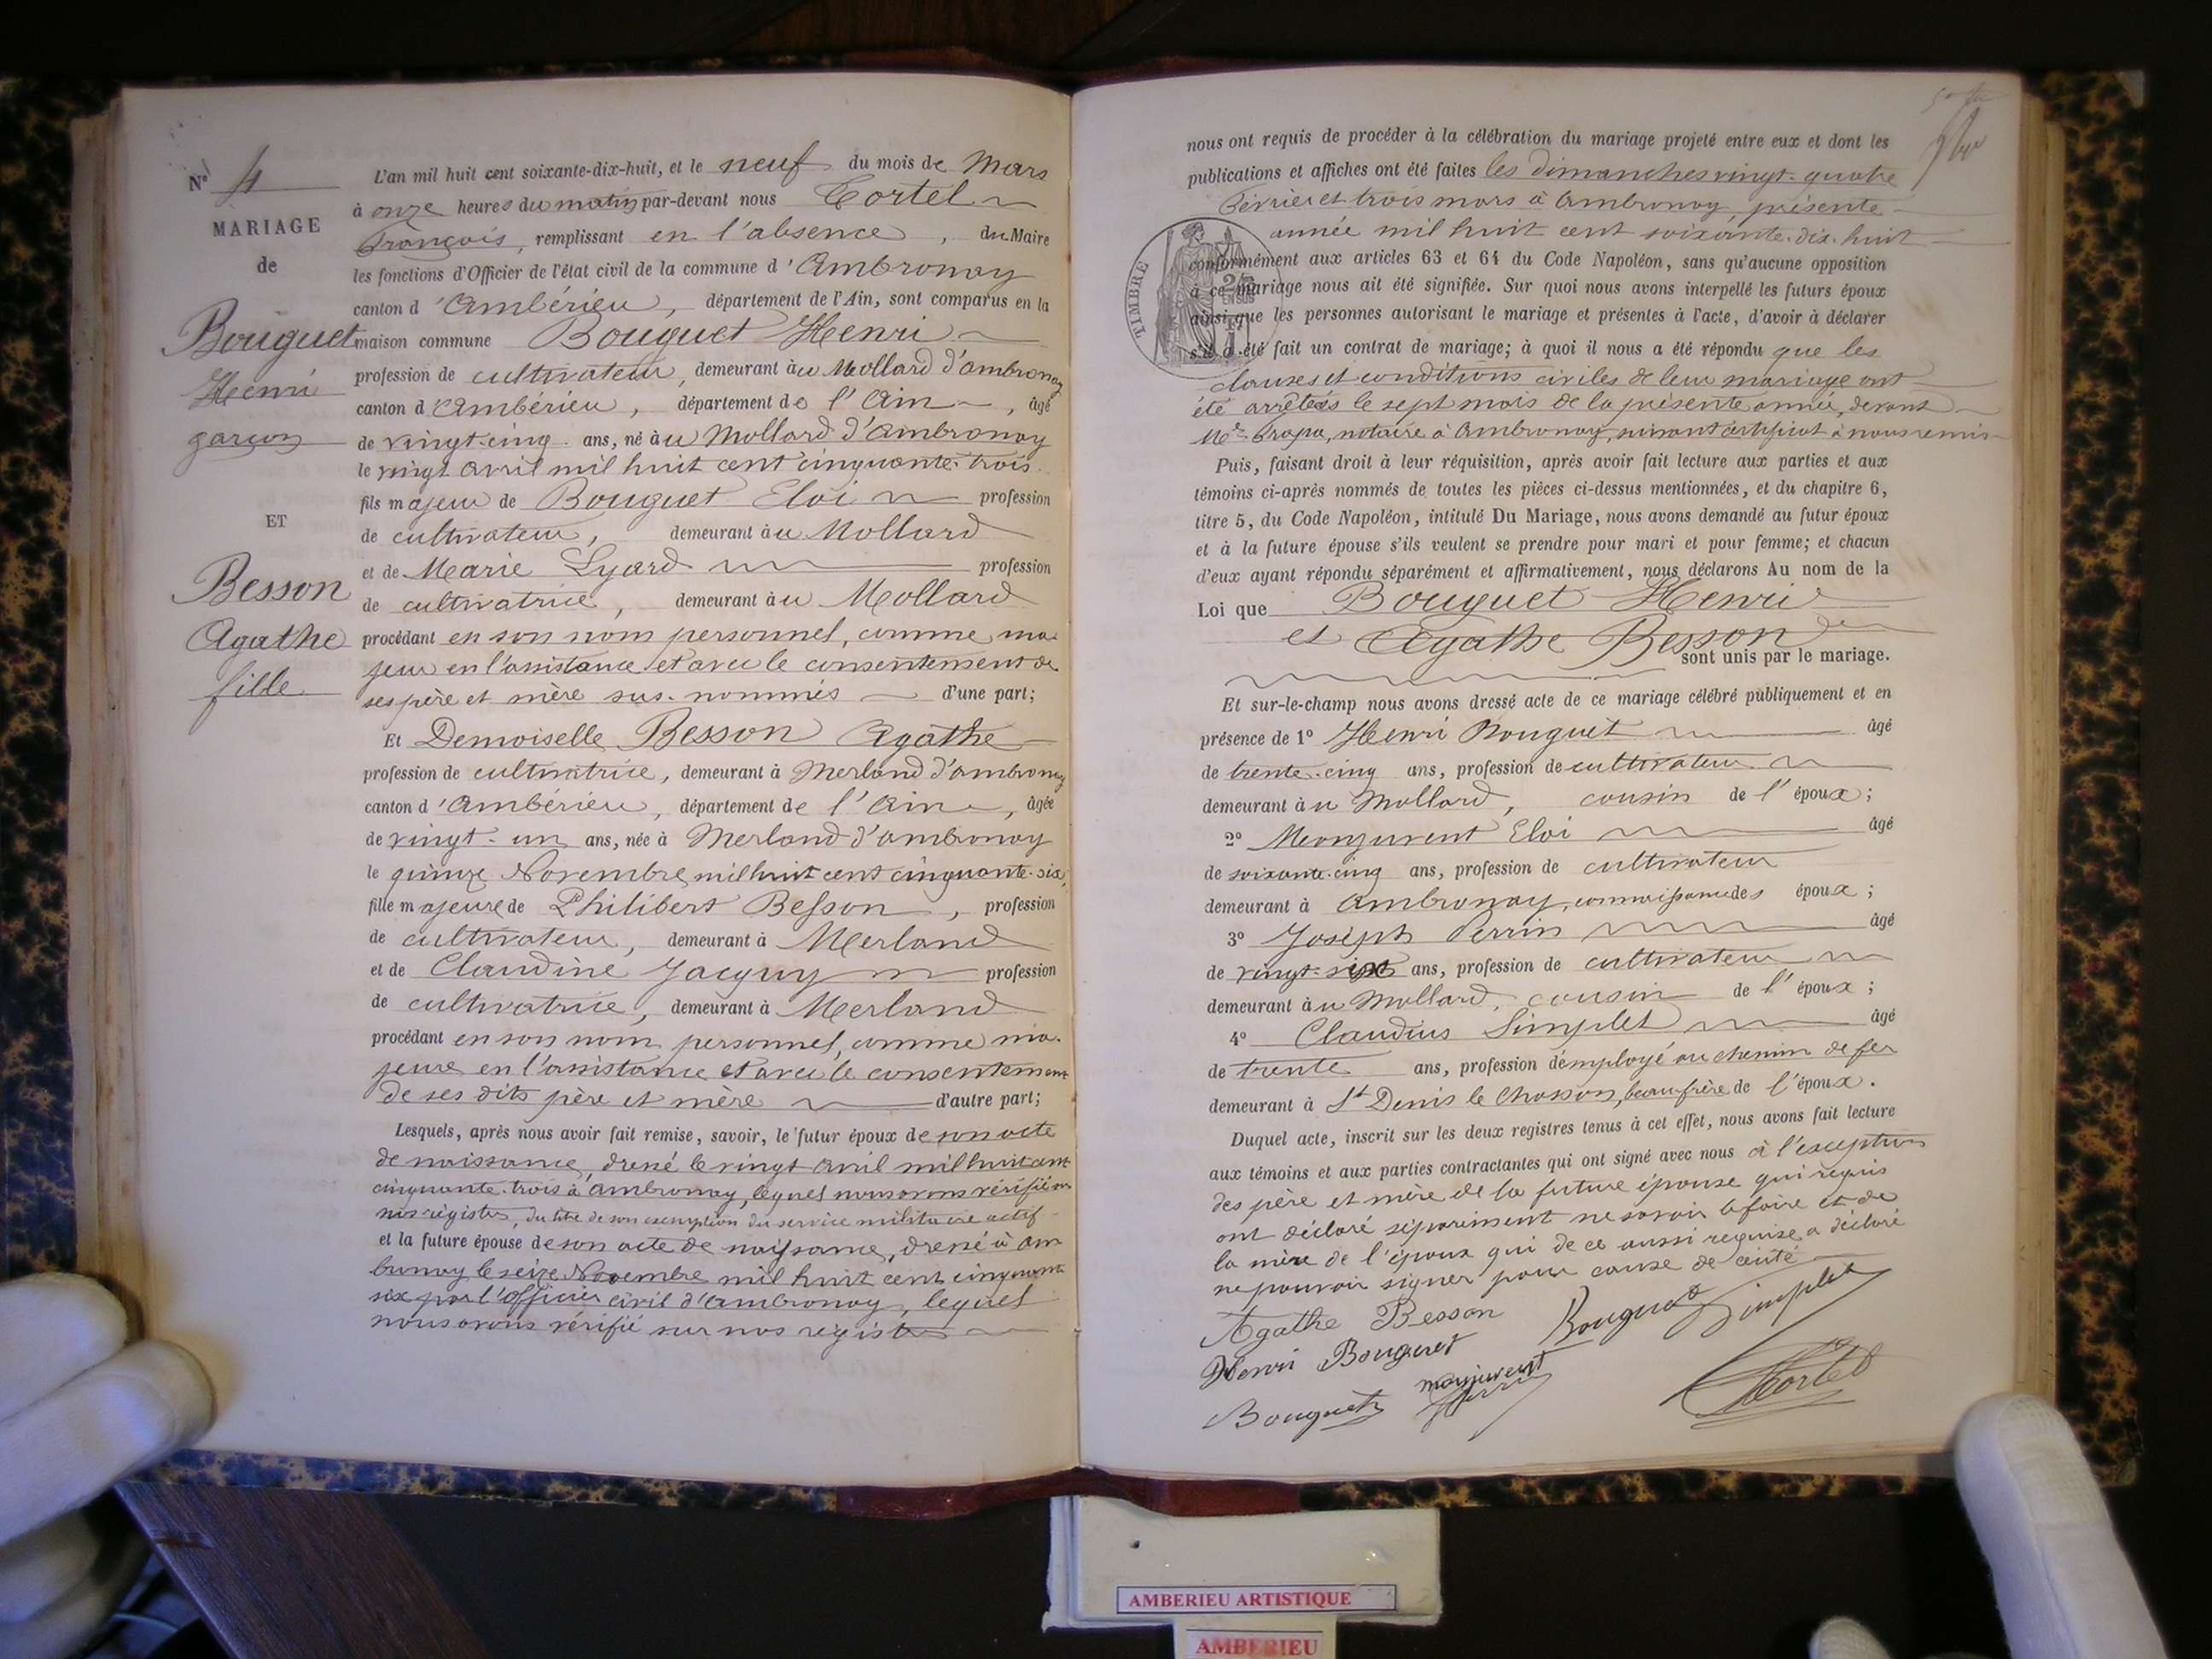 Nº 4
MARIAGE
de
Bouguet
Henri
garçon
ET
Besson
Agathe
fille
L'an mil huit cent soixante-dix-huit, et le neuf du mois de Mars
à onze heures du matin par-devant nous Cortel
François, remplissant en l'absence, du Maire
les fonctions d'Officier de l'état civil de la commune d'Ambronay
canton d'Ambérieu, département de l'Ain, sont comparus en la
maison commune Bouguet Henri
profession de cultivateur, demeurant àu Mollard d'ambronay
canton d'Ambérieu, département de l'Ain, âgé
de vingt-cinq ans, né àu Mollard d'Ambronay
le vingt avril mil huit cent cinquante-trois
fils majeur de Bouguet Eloi profession
de cultivateur, demeurant àu Mollard
et de Marie Lyard profession
de cultivatrice, demeurant àu Mollard
procédant en son nom personnel, comme ma-
jeur en l'assistance et avec le consentement de
ses père et mère sus-nommés d'une part;
Et Demoiselle Besson Agathe
profession de cultivatrice, demeurant à Merland d'ambronay
canton d'Ambérieu, département de l'Ain, âgée
de vingt-un ans, née à Merland d'ambronay
le quinze Novembre mil huit cent cinquante-six,
fille majeure de Philibert Besson, profession
de cultivateur, demeurant à Merland
et de Claudine Jacquy profession
de cultivatrice, demeurant à Merland
procédant en son nom personnel, comme ma-
jeure en l'assistance et avec le consentement
de ses dits père et mère d'autre part;
Lesquels, après nous avoir fait remise, savoir, le futur époux de son acte
de naissance, dressé le vingt avril mil huit cent
cinquante-trois à ambronay, lequel nous avons vérifié sur
nos registres, du titre de son exemption du service militaire actif
et la future épouse de son acte de naissance, dressé à Am
bronay le seize Novembre mil huit cent cinquante
six par l'officier civil d'Ambronay, lequel
nous avons vérifié sur nos registres
nous ont requis de procéder à la célébration du mariage projeté entre eux et dont les
publications et affiches ont été faites les dimanches vingt-quatre
Février et trois mars à Ambronay, présente
année mil huit cent soixante-dix-huit
TIMBRE
conformément aux articles 63 et 64 du Code Napoléon, sans qu'aucune opposition
à ce mariage nous ait été signifiée. Sur quoi nous avons interpellé les futurs époux
ainsi que les personnes autorisant le mariage et présentes à l'acte, d'avoir à déclarer
s'il a été fait un contrat de mariage; à quoi il nous a été répondu que les
clauses et conditions civiles de leur mariage ont
été arrêtées le sept mars de la présente année, devant
notaire à Ambronay, suivant certificat à nous remis
Puis, faisant droit à leur réquisition, après avoir fait lecture aux parties et aux
témoins ci-après nommés de toutes les pièces ci-dessus mentionnées, et du chapitre 6,
titre 5, du Code Napoléon, intitulé Du Mariage, nous avons demandé au futur époux
et à la future épouse s'ils veulent se prendre pour mari et pour femme; et chacun
d'eux ayant répondu séparément et affirmativement, nous déclarons Au nom de la
Loi que Bouguet Henri
et Agathe Besson
sont unis par le mariage.
Et sur-le-champ nous avons dressé acte de ce mariage célébré publiquement et en
présence de 1º Henri Bouguet âgé
de trente-cinq ans, profession de cultivateur
demeurant àu Mollard, cousin de l'époux;
2º Monjuvent Eloi âgé
de soixante-cinq ans, profession de cultivateur
demeurant à Ambronay, connaissance des époux;
3º Joseph Perrin âgé
de vingt-sept ans, profession de cultivateur
demeurant àu Mollard, cousin de l'époux;
4º Claudius Simplet âgé
de trente ans, profession d'employé au chemin de fer
demeurant à St Denis le Chosson, beau-frère de l'époux.
Duquel acte, inscrit sur les deux registres tenus à cet effet, nous avons fait lecture
aux témoins et aux parties contractantes qui ont signé avec nous à l'exception
des père et mère de la future épouse qui requis
ont déclaré séparément ne savoir le faire et de
la mère de l'époux qui de ce aussi requise a déclaré
ne pouvoir signer pour cause de cécité
Agathe Besson Bouguet Simplet
Henri Bouguet
monjuvent
Bouguet Perrin Cortel
AMBERIEU ARTISTIQUE
AMBERIEU